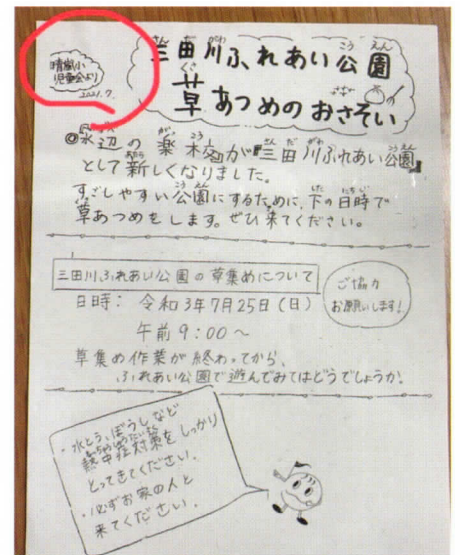 晴嵐小
児童会より
2021.7
三田川ふれあい公園
草あつめのおさそい
◎水辺の楽校が『三田川ふれあい公園』
として新しくなりました。
すごしやすい公園にするために、下の日時で
草あつめをします。ぜひ来てください。
三田川ふれあい公園の草集めについて
日時： 令和3年7月25日(日)
午前9：00～
草集め作業が終わってから、
ふれあい公園で遊んでみてはどうでしょうか。
ご協力
お願いします！
・水とう、ぼうしなど
熱中症対策をしっかり
とってきてください。
・必ずお家の人と
来てください。